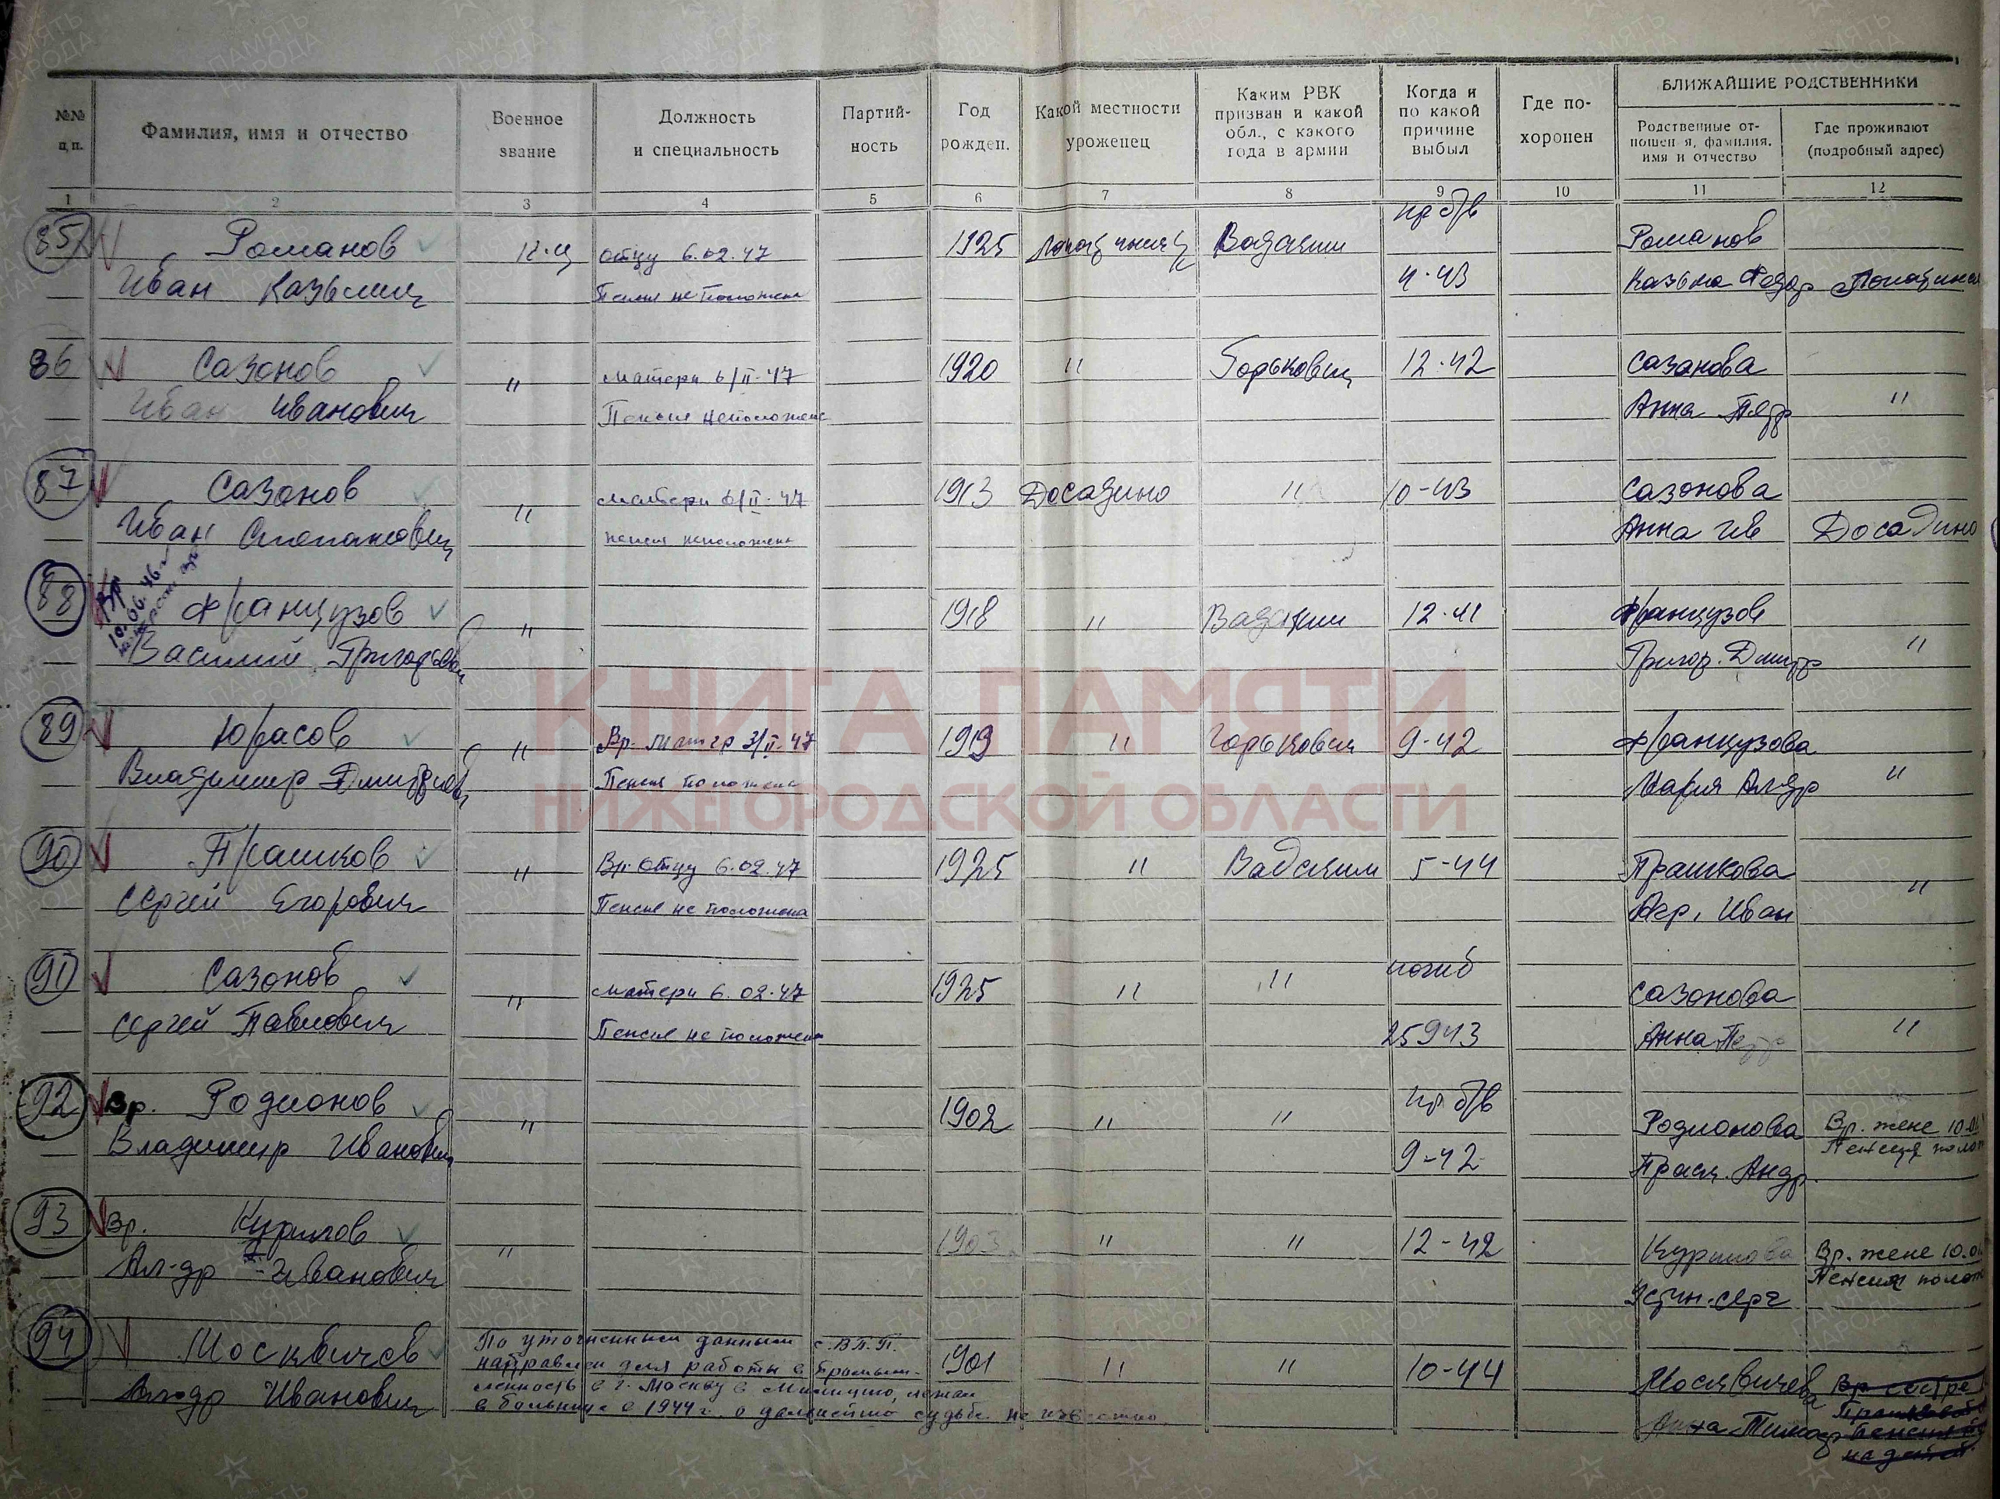 БЛИЖАЙШИЕ РОДСТВЕННИКИ
№№ п.п. Фамилия, имя и отчество Военное звание Должность и специальность Партий-ность Год рожден. Какой местности уроженец Каким РВК призван и какой обл., с какого года в армии Когда и по какой причине выбыл Где по-хоронен Родственные от-ношен-я, фамилия, имя и отчество Где проживают (подробный адрес)
1 2 3 4 5 6 7 8 9 10 11 12
пр б/в
85 Романов отцу 6.02.47 1925 Вадским Романов
Иван Казьмич Пенсия не положена 4-43 Казьма Федор
86 Сазонов " матери 6/II-47 1920 " Горьковск 12-42 Сазанова
Иван Иванович Пенсия неположена Анна Педр "
87 Сазонов " матери 6/II-47 1913 Досадино " 10-43 Сазонова
Иван Степанович пенсия неположена Анна Ив Досадино
Вр 10.06.46
88 Французов " 1918 " Вадским 12-41 Французов
Василий Григорьев Григор. Дмитр "
89 Юрасов " Вр. матер 3/II-47 1919 " Горьковск 9-42 Французова
Владимир Дмитриев Пенсия положена Мария Ал-др "
90 Прашков " Вр. отцу 6.02.47 1925 " Вадским 5-44 Прашкова
Сергей Егорович Пенсия не положена Агр. Иван "
91 Сазонов " матери 6.02.47 1925 " " погиб Сазонова
Сергей Павлович Пенсия не положена 25943 Анна Петр "
92 Вр. Родионов " 1902 " " пр б/в Родионова Вр. жене 10.0
Владимир Иванович 9-42 Праск. Андр. Пенсия полож
93 Вр. " 1903 " " 12-42 Вр. жене 10.0
Ал-др Иванович Устин. Серг Пенсия полож
94 Москвичев По уточненным данным с. В.П.П. 1901 " " 10-44 Москвичева Вр. сестре
Ал-др Иванович направлен для работы в промыш-
ленность в г. Москву в милицию, лежал
в больнице в 1944 г. о дальнейшей судьбе не известно. Анна Тимоф
КНИГА ПАМЯТИ
НИЖЕГОРОДСКОЙ ОБЛАСТИ
ПАМЯТЬ НАРОДА